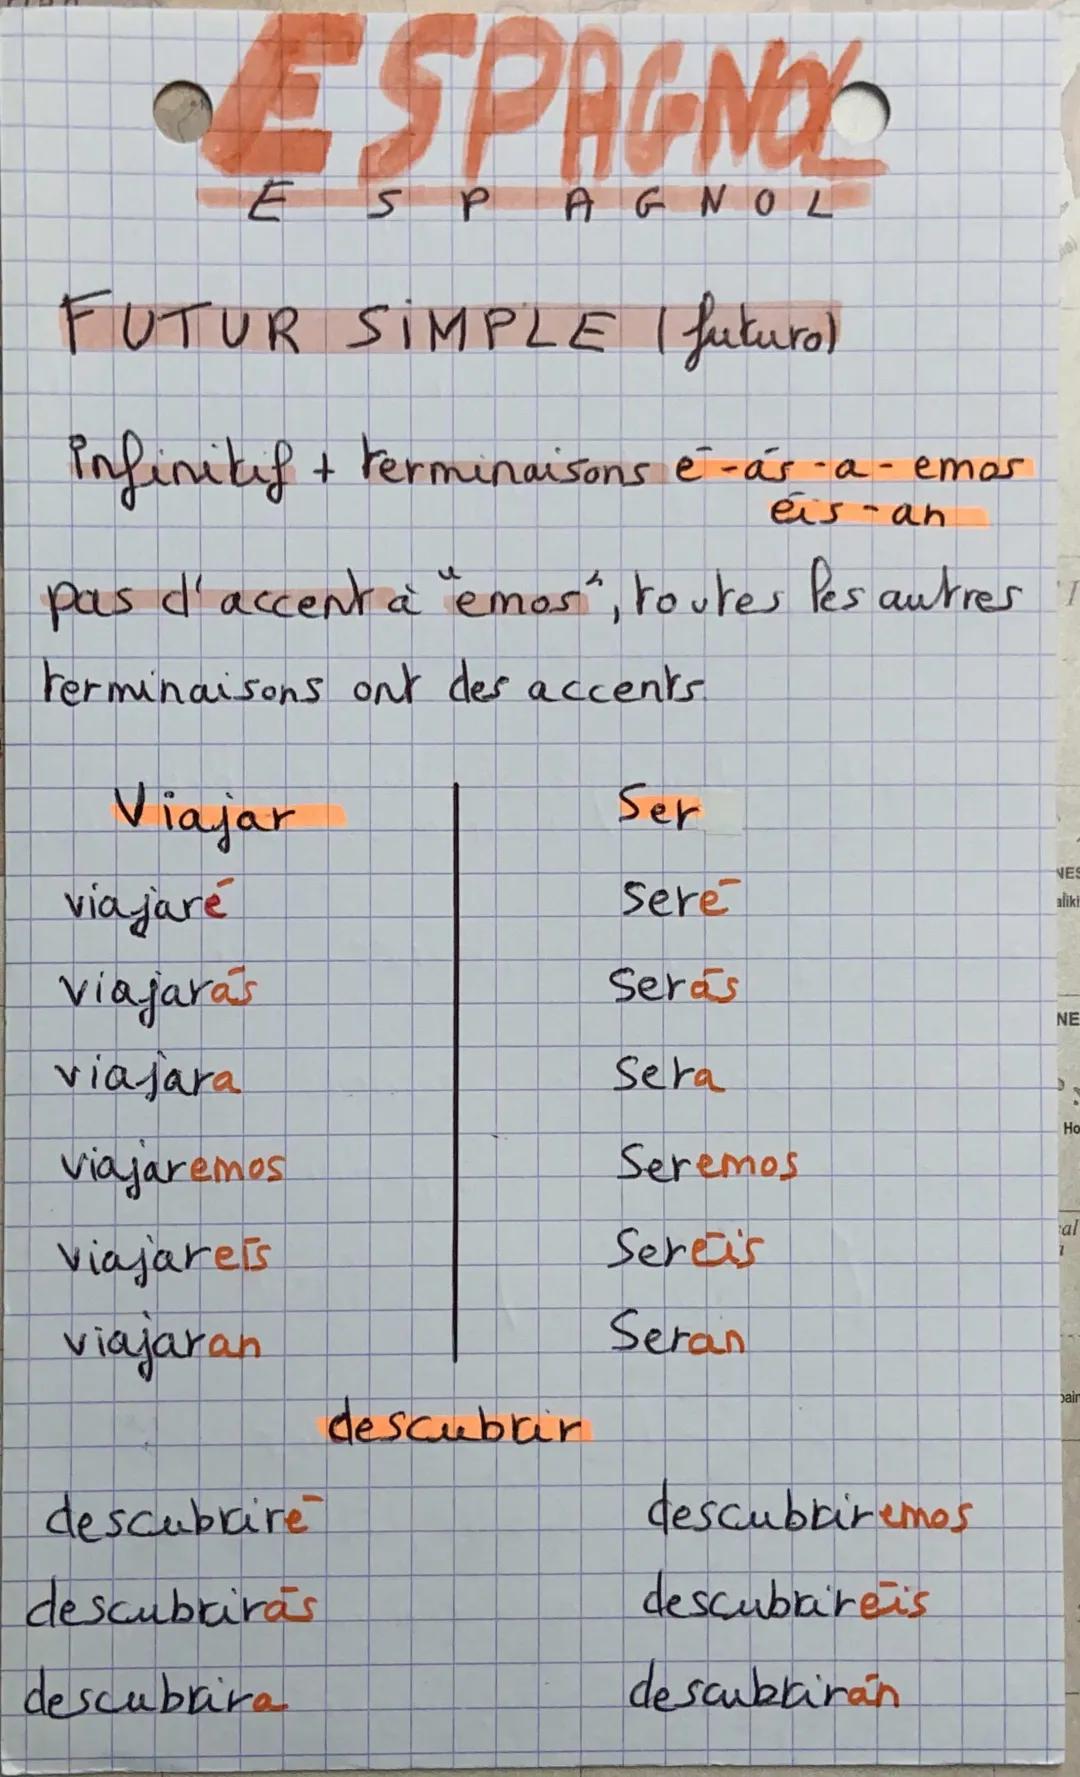 ESPAGNOL
ESPAGNOL
FUTUR SIMPLE (futuro)
infinitif + terminaisons é-ás-a-emos
éis-an
pas d'accent à "emos", toutes les autres
terminaisons ont des accents.
Viajar
viajaré
viajarás
viajara
viajaremos
viajareís
viajaran
Ser
Seré
Serás
Sera
Seremos
Seréis
Seran
descubrir
descubriré
descubrirás
descubrira
descubriremos
descubriréis
descubrirán